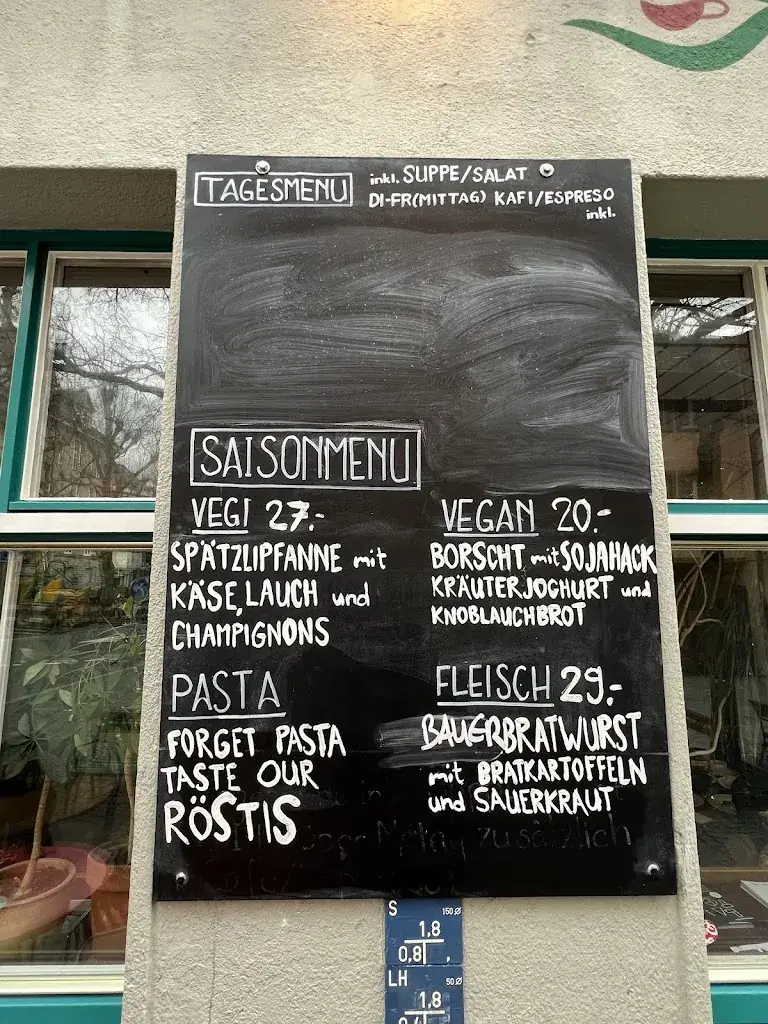 TAGESMENU
inkl. SUPPE/SALAT
DI-FR(MITTAG) KAFI/ESPRESO
inkl.
SAISONMENU
VEGI 27.-
SPÄTZLIPFANNE mit
KÄSE, LAUCH und
CHAMPIGNONS
VEGAN 20.-
BORSCHT mit SOJAHACK
KRÄUTERJOGHURT und
KNOBLAUCHBROT
PASTA
FORGET PASTA
TASTE OUR
RÖSTIS
FLEISCH 29,-
BAUERBRATWURST
mit BRATKARTOFFELN
und SAUERKRAUT
zusätzlich
S 150 Ø
1,8
0,8
LH 50 Ø
1,8